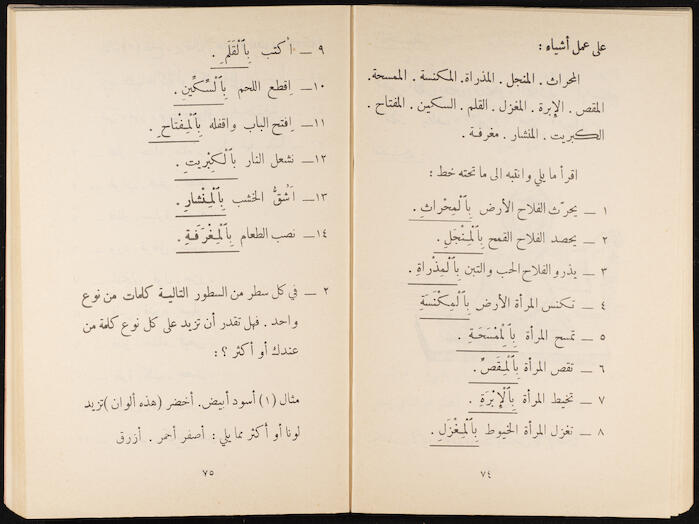 على عمل أشياء :
المحراث . المنجل . المذراة . المكنسة . الممسحة .
المقص . الإبرة . المغزل . القلم . السكين . المفتاح .
الكبريت . المنشار . مغرفة .
اقرأ ما يلي وانتبه الى ما تحته خط :
١ ــ يحرّث الفلاح الأرض بِٱلْمِحْراثِ .
٢ ــ يحصد الفلاح القمح بِٱلْمِنْجَلِ .
٣ ــ يذرو الفلاح الحب والتبن بِٱلْمِذْراةِ .
٤ ــ تكنس المرأة الأرض بِٱلْمِكْنَسَةِ
٥ ــ تمسح المرأة بِٱلْمْسَحَةِ .
٦ ــ تقص المرأة بِٱلْمِقَصِّ .
٧ ــ تخيط المرأة بِٱلْإِبْرَةِ .
٨ ــ تغزل المرأة الخيوط بِٱلْمِغْزَلِ .
٧٤
٩ ــ أكتب بِٱلْقَلَمِ .
١٠ــ اِقطع اللحم بِٱلسِّكِّينِ .
١١ــ اِفتح الباب واقفله بِٱلْمِفْتاحِ .
١٢ــ نشعل النار بِٱلْكِبْريتِ .
١٣ــ أَشُقُّ الخشب بِٱلْمِنْشارِ .
١٤ــ نصب الطعام بِٱلْمِغْرَفَةِ .
٢ ــ في كل سطر من السطور التالية كلمات من نوع
واحد . فهل تقدر أن تزيد على كل نوع كلمة من
عندك أو أكثر ؟ :
مثال (١) أسود أبيض . أخضر (هذه ألوان) تزيد
لونا أو أكثر مما يلي : أصفر أحمر . أزرق
٧٥